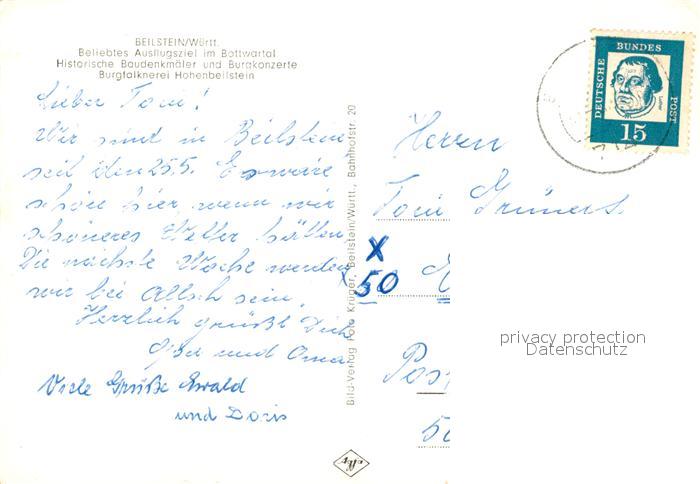 BEILSTEIN/Württ.
Beliebtes Ausflugsziel im Bottwartal
Historische Baudenkmäler und Burgkonzerte
Burgfalknerei Hohenbeilstein
Lieber Toni!
Wir sind in Beilstein
seit den 25.5. Es wäre
schön hier, wenn wir
schöneres Wetter hätten.
Die nächste Woche werden
wir bei sein.
Herzlich grüßt Dich
Opa und Oma
Viele Grüße Ewald
und Doris
Bild-Verlag Foto Krüger, Beilstein/Württ., Bahnhofstr. 20
DEUTSCHE BUNDES POST
Luther
15
Herrn
Toni Grüners
X
50
Pos
50
privacy protection
Datenschutz
Agfa